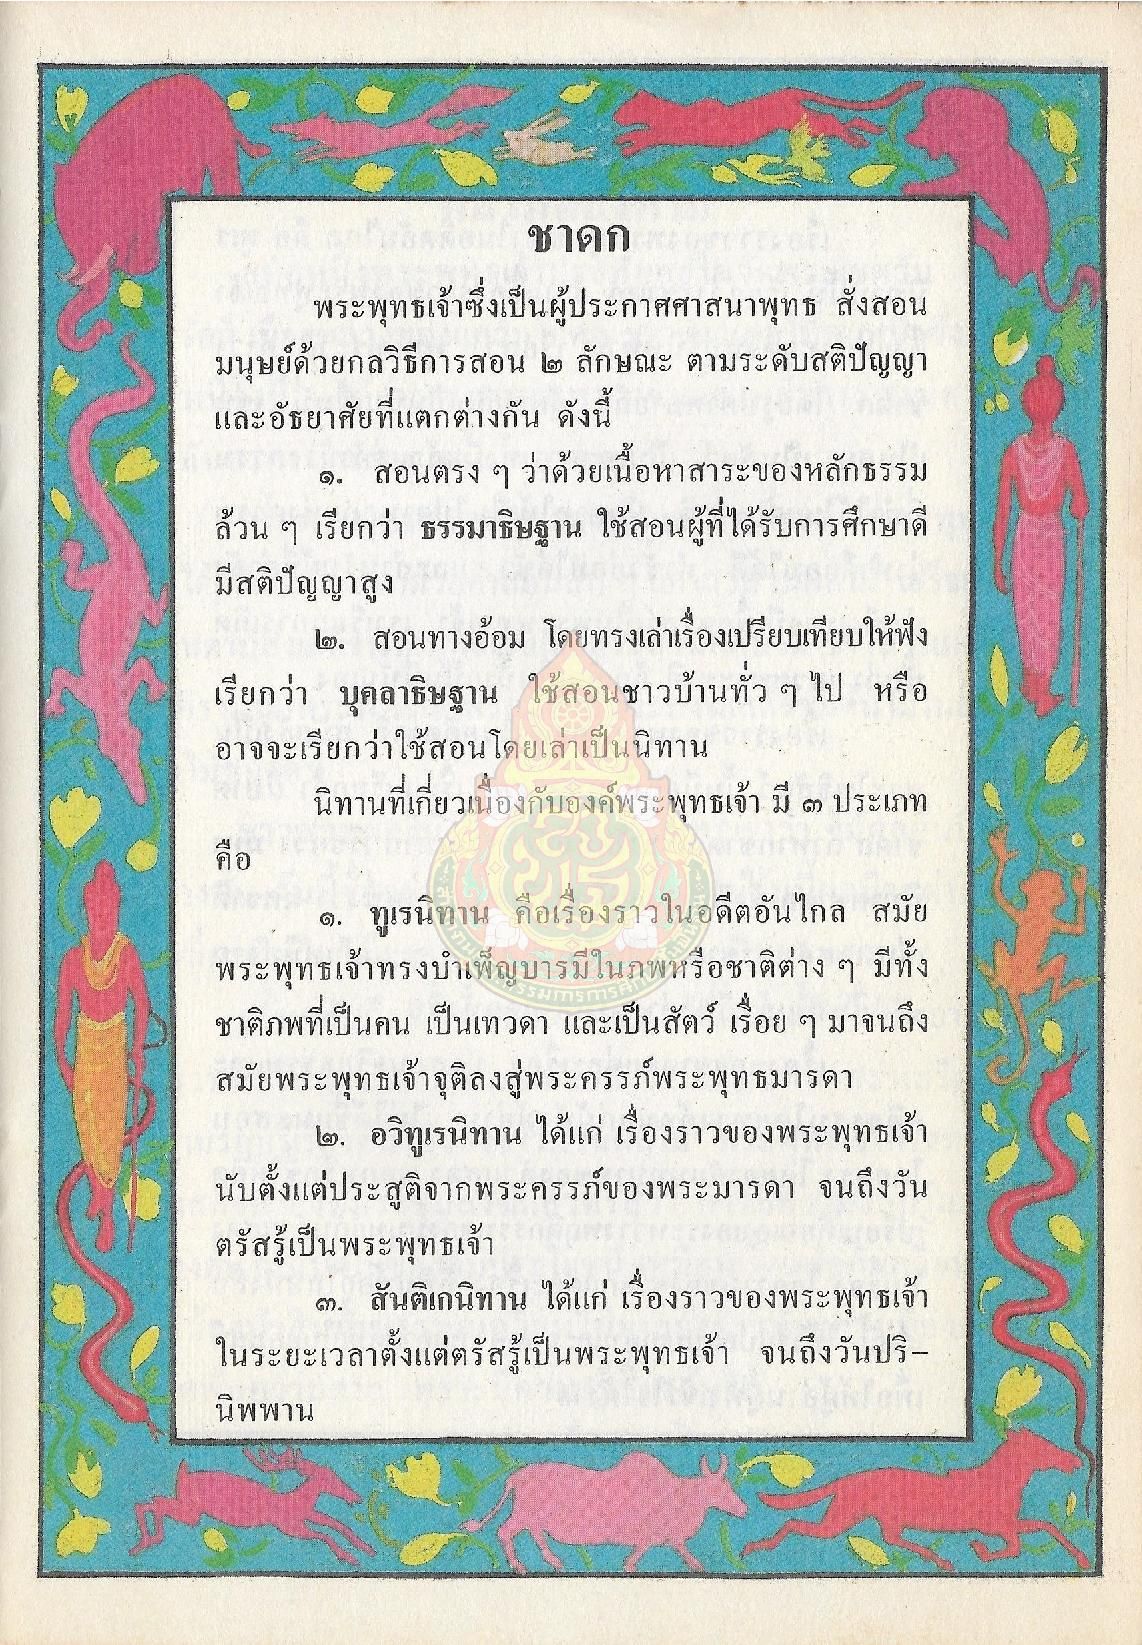 ชาดก
พระพุทธเจ้าซึ่งเป็นผู้ประกาศศาสนาพุทธ สั่งสอน
มนุษย์ด้วยกลวิธีการสอน ๒ ลักษณะ ตามระดับสติปัญญา
และอัธยาศัยที่แตกต่างกัน ดังนี้
๑. สอนตรง ๆ ว่าด้วยเนื้อหาสาระของหลักธรรม
ล้วน ๆ เรียกว่า ธรรมาธิษฐาน ใช้สอนผู้ที่ได้รับการศึกษาดี
มีสติปัญญาสูง
๒. สอนทางอ้อม โดยทรงเล่าเรื่องเปรียบเทียบให้ฟัง
เรียกว่า บุคลาธิษฐาน ใช้สอนชาวบ้านทั่ว ๆ ไป หรือ
อาจจะเรียกว่าใช้สอนโดยเล่าเป็นนิทาน
นิทานที่เกี่ยวเนื่องกับองค์พระพุทธเจ้า มี ๓ ประเภท
คือ
๑. ทูเรนิทาน คือเรื่องราวในอดีตอันไกล สมัย
พระพุทธเจ้าทรงบำเพ็ญบารมีในภพหรือชาติต่าง ๆ มีทั้ง
ชาติภพที่เป็นคน เป็นเทวดา และเป็นสัตว์ เรื่อย ๆ มาจนถึง
สมัยพระพุทธเจ้าจุติลงสู่พระครรภ์พระพุทธมารดา
๒. อวิทูเรนิทาน ได้แก่ เรื่องราวของพระพุทธเจ้า
นับตั้งแต่ประสูติจากพระครรภ์ของพระมารดา จนถึงวัน
ตรัสรู้เป็นพระพุทธเจ้า
๓. สันติเกนิทาน ได้แก่ เรื่องราวของพระพุทธเจ้า
ในระยะเวลาตั้งแต่ตรัสรู้เป็นพระพุทธเจ้า จนถึงวันปริ-
นิพพาน